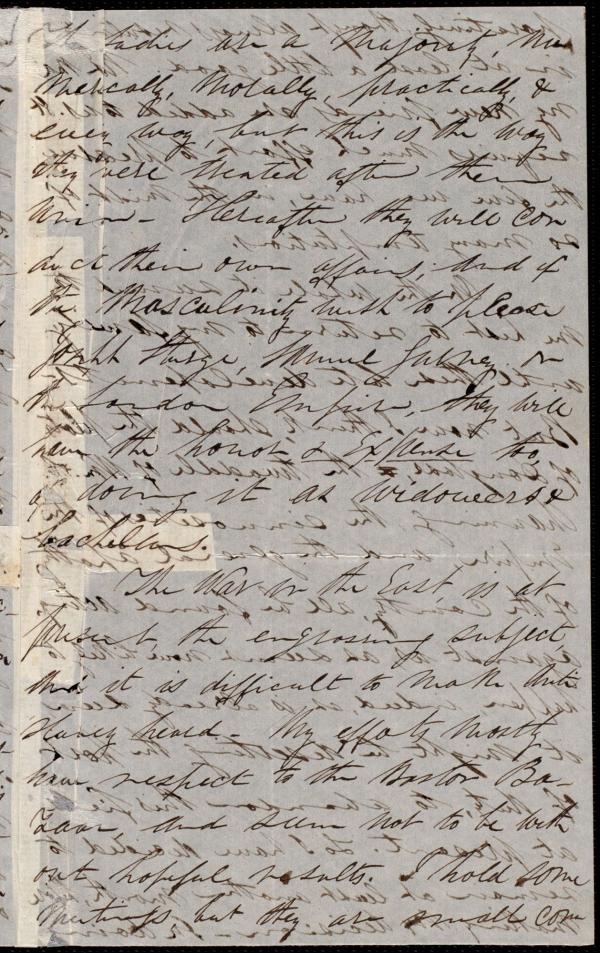 Ladies are a Majority, Nu
merically, Morally, practically, &
every way, but this is the way
they were treated after their
Union - Hereafter they will con
duct their own affairs, and if
the Masculinity wish to please
Joseph Sturge, Samuel Gurney, or
the London Empire, they will
have the honor & Expense too,
of doing it as Widowers &
bachellors.
The War in the East is at
present, the engrossing subject,
and it is difficult to make Anti
Slavery heard - My efforts mostly
have respect to the Boston Ba-
zaar, and seem not to be with
out hopeful results. I hold some
meetings but they are small com